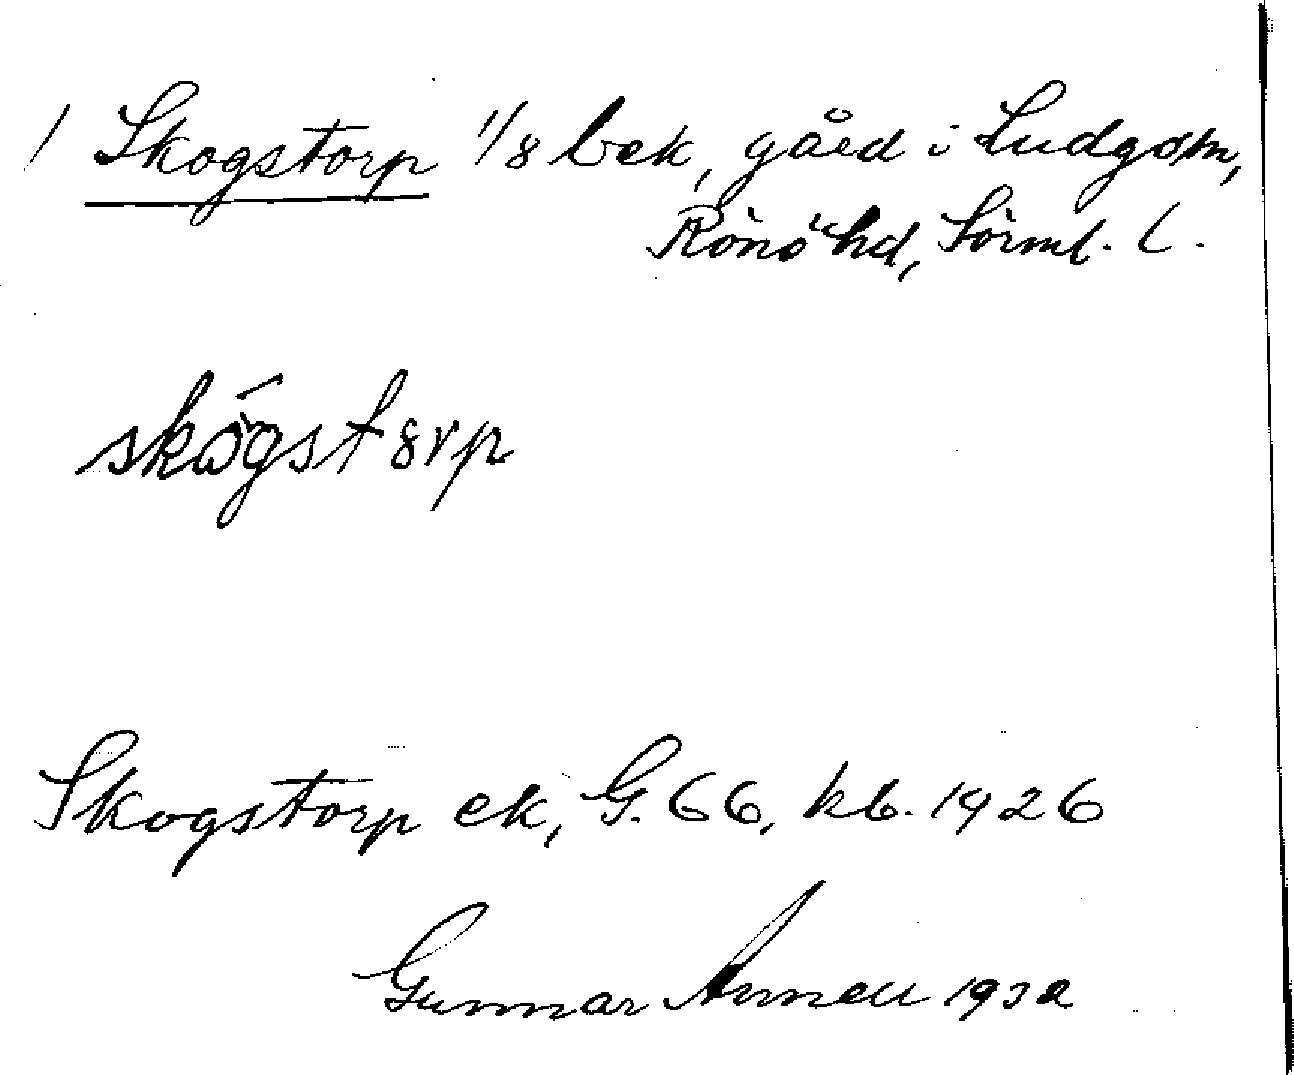 / Skogstorp 1/8 bek, gård i Ludgom,
Rönö hd, Sörml. l.
skógstorp
Skogstorp ek, G. 66, kb. 1926
Gunnar Annell 1932